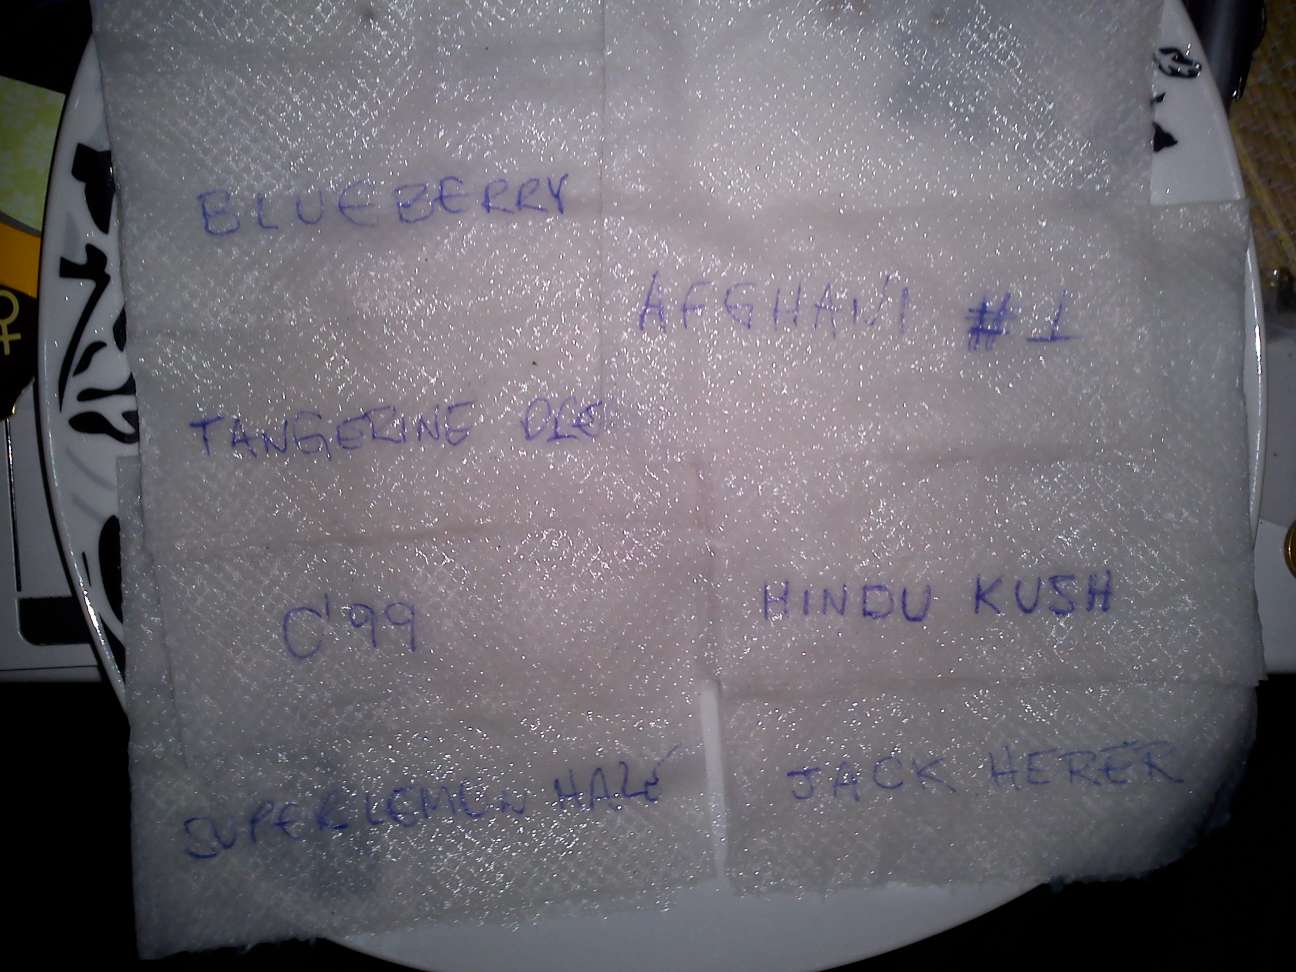 BLUEBERRY
AFGHANI #1
TANGERINE
C'99
HINDU KUSH
SUPER LEMON HAZE
JACK HERER